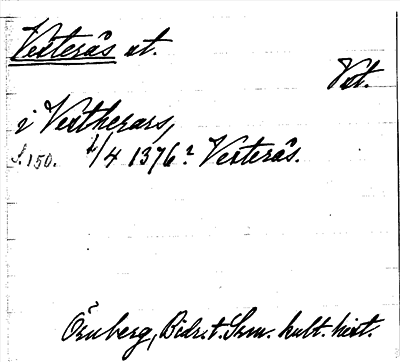 Vesterås st.
Vst.
i Vestherars,
S. 150. 2/4 1376? Vesterås.
Örnberg, Bidr. t. Srm. kult. hist.